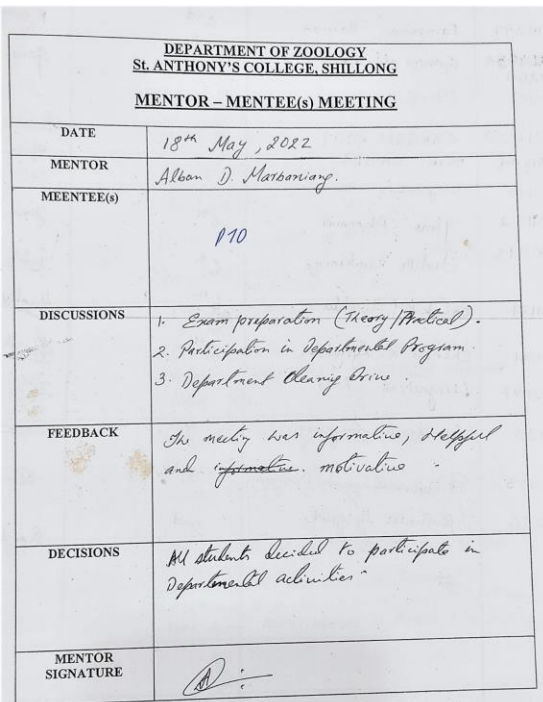 DEPARTMENT OF ZOOLOGY
St. ANTHONY'S COLLEGE, SHILLONG
MENTOR – MENTEE(s) MEETING
DATE
18th May, 2022
MENTOR
Alban D. Marbaniang.
MEENTEE(s)
PTO
DISCUSSIONS
1. Exam preparation (Theory/Practical).
2. Participation in Departmental Program.
3. Department Cleaning Drive.
FEEDBACK
The meeting was informative, Helpful
and informative. motivative
DECISIONS
All students decided to participate in
Departmental activities
MENTOR
SIGNATURE